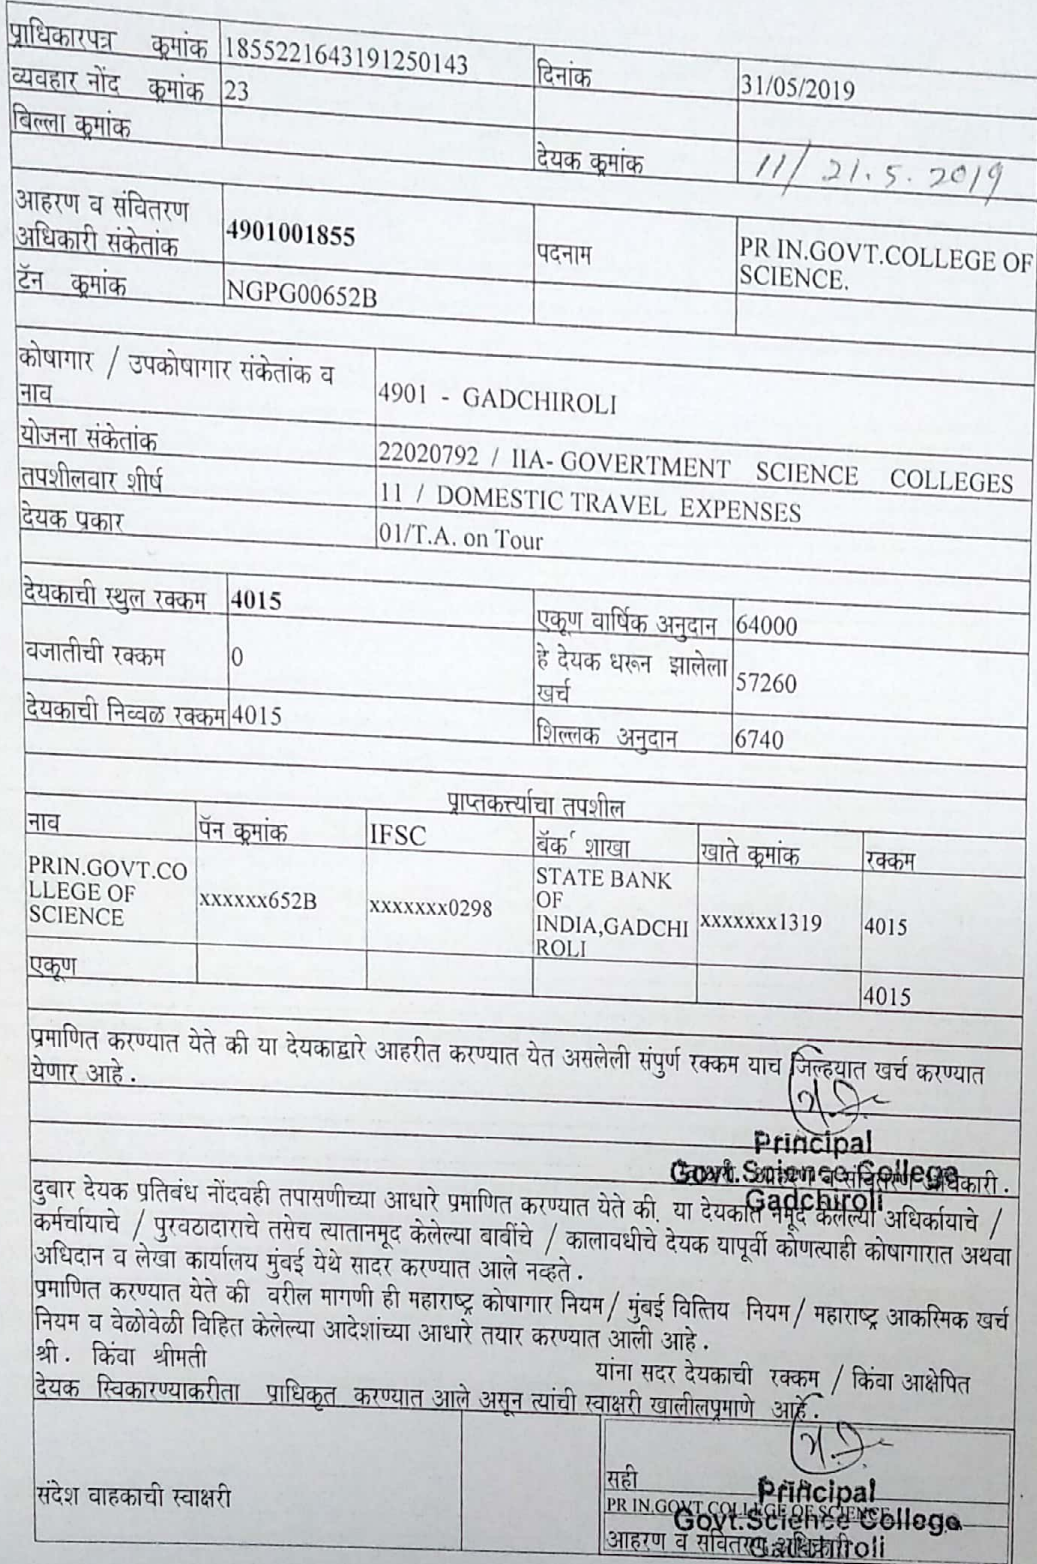 प्राधिकारपत्र क्रमांक 1855221643191250143 दिनांक 31/05/2019
व्यवहार नोंद क्रमांक 23
बिल्ला क्रमांक
देयक क्रमांक 11/ 21.5.2019
आहरण व संवितरण
अधिकारी संकेतांक 4901001855 पदनाम PR IN.GOVT.COLLEGE OF
SCIENCE.
टॅन क्रमांक NGPG00652B
कोषागार / उपकोषागार संकेतांक व
नाव 4901 - GADCHIROLI
योजना संकेतांक 22020792 / IIA- GOVERTMENT SCIENCE COLLEGES
तपशीलवार शीर्ष 11 / DOMESTIC TRAVEL EXPENSES
देयक प्रकार 01/T.A. on Tour
देयकाची स्थुल रक्कम 4015 एकूण वार्षिक अनुदान 64000
वजातीची रक्कम 0 हे देयक धरून झालेला
खर्च 57260
देयकाची निव्वळ रक्कम 4015 शिल्लक अनुदान 6740
प्राप्तकर्त्याचा तपशील
नाव पॅन क्रमांक IFSC बॅक शाखा खाते क्रमांक रक्कम
PRIN.GOVT.CO
LLEGE OF
SCIENCE xxxxxx652B xxxxxxx0298 STATE BANK
OF
INDIA,GADCHI
ROLI xxxxxxx1319 4015
एकूण 4015
प्रमाणित करण्यात येते की या देयकाद्वारे आहरीत करण्यात येत असलेली संपुर्ण रक्कम याच जिल्हयात खर्च करण्यात
येणार आहे.
Principal
Govt.Science College
Gadchiroli
दुबार देयक प्रतिबंध नोंदवही तपासणीच्या आधारे प्रमाणित करण्यात येते की, या देयकात नमूद केलेल्या अधिर्कायाचे /
कर्मचार्याचे / पुरवठादाराचे तसेच त्यातानमूद केलेल्या बावींचे / कालावधीचे देयक यापूर्वी कोणत्याही कोषागारात अथवा
अधिदान व लेखा कार्यालय मुंबई येथे सादर करण्यात आले नव्हते.
प्रमाणित करण्यात येते की वरील मागणी ही महाराष्ट्र कोषागार नियम/ मुंबई वित्तिय नियम/ महाराष्ट्र आकस्मिक खर्च
नियम व वेळोवेळी विहित केलेल्या आदेशांच्या आधारे तयार करण्यात आली आहे.
श्री. किंवा श्रीमती यांना सदर देयकाची रक्कम / किंवा आक्षेपित
देयक स्विकारण्याकरीता प्राधिकृत करण्यात आले असून त्यांची स्वाक्षरी खालीलप्रमाणे आहे.
संदेश वाहकाची स्वाक्षरी
सही
Principal
PR IN.GOVT.COLLEGE OF SCIENCE
Govt.Science College
आहरण व संवितरण
Gadchiroli